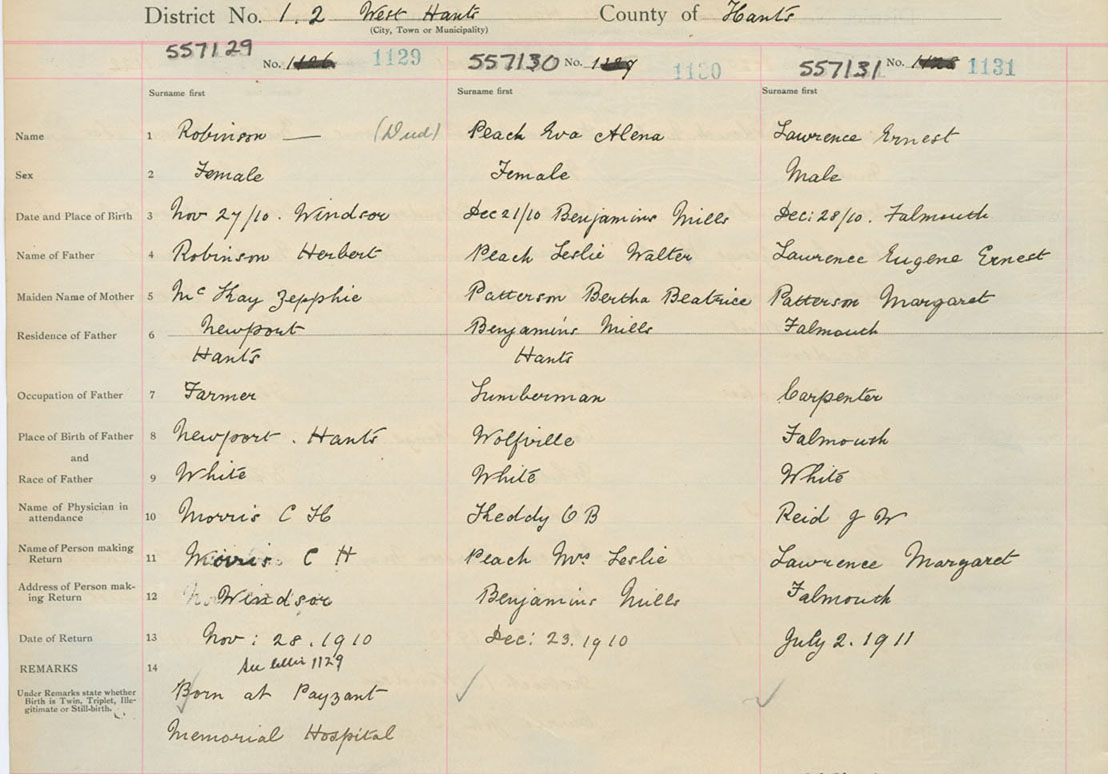 District No. 1.2 West Hants County of Hants
(City, Town or Municipality)
557129 No. 1129 557130 No. 1130 557131 No. 1131
Surname first Surname first Surname first
Name 1 Robinson — (Died) Peach Eva Alena Lawrence Ernest
Sex 2 Female Female Male
Date and Place of Birth 3 Nov 27/10. Windsor Dec 21/10 Benjamins Mills Dec: 28/10. Falmouth
Name of Father 4 Robinson Herbert Peach Leslie Walter Lawrence Eugene Ernest
Maiden Name of Mother 5 Mc Kay Zepphie Patterson Bertha Beatrice Patterson Margaret
Residence of Father 6 Newport Benjamins Mills Falmouth
Hants Hants
Occupation of Father 7 Farmer Lumberman Carpenter
Place of Birth of Father 8 Newport. Hants Wolfville Falmouth
and
Race of Father 9 White White White
Name of Physician in attendance 10 Morris C H Keddy O B Reid J W
Name of Person making Return 11 Morris C H Peach Mrs Leslie Lawrence Margaret
Address of Person making Return 12 Windsor Benjamins Mills Falmouth
Date of Return 13 Nov: 28. 1910 Dec: 23. 1910 July 2. 1911
REMARKS 14 See letter 1129
Under Remarks state whether Birth is Twin, Triplet, Illegitimate or Still-birth. Born at Payzant
Memorial Hospital